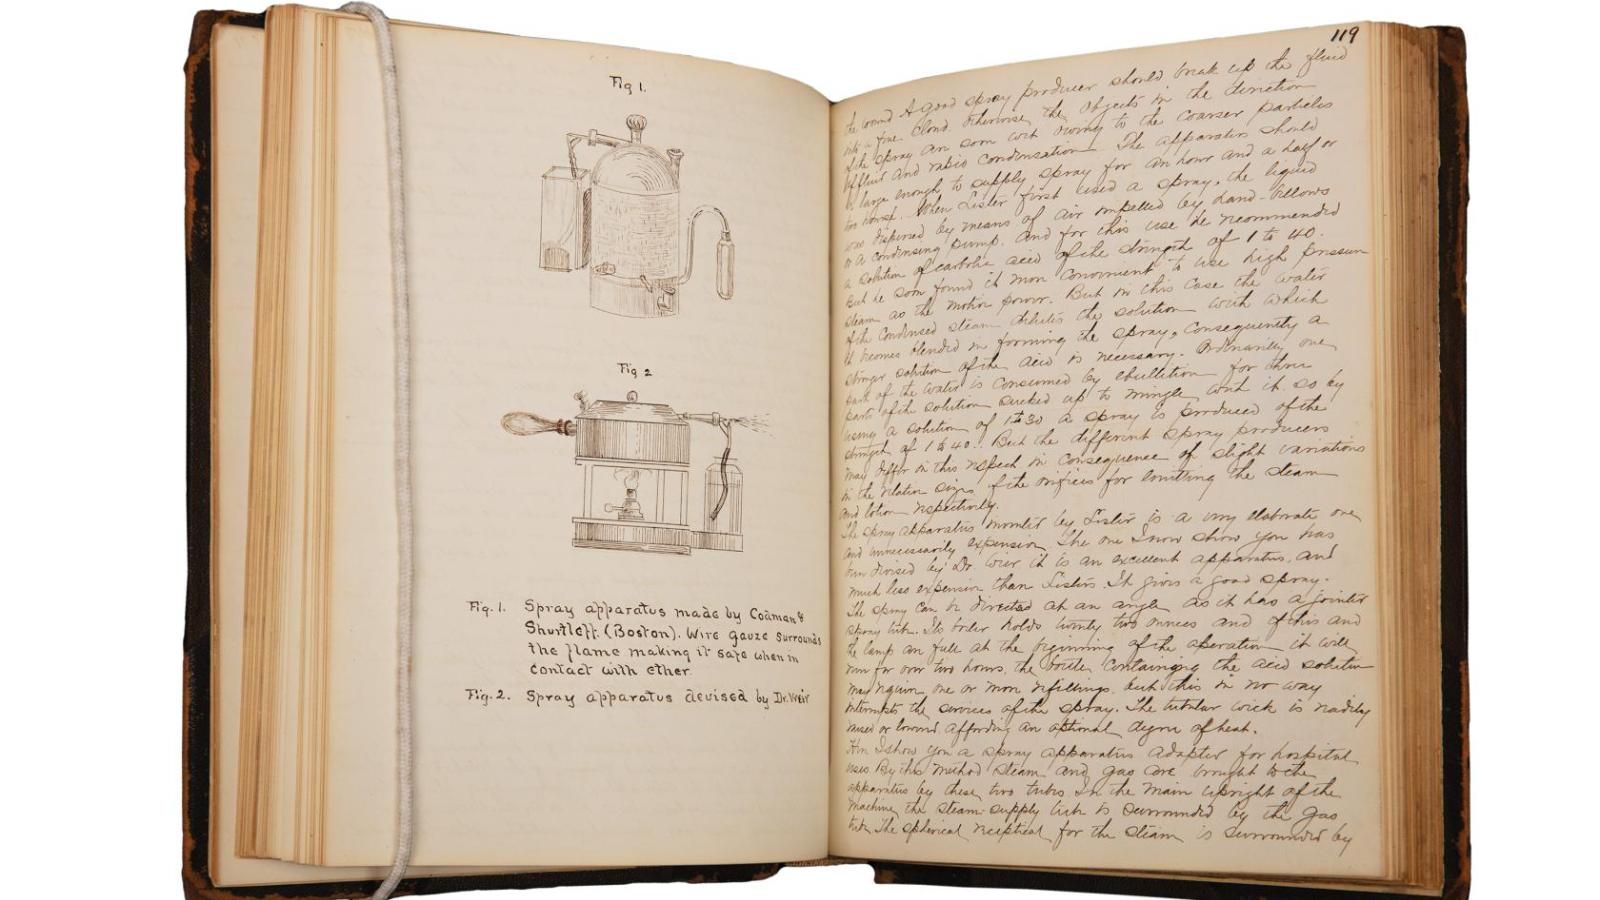 Fig 1.
Fig 2
Fig. 1. Spray apparatus made by Codman &
Shurtleff. (Boston). Wire gauze surrounds
the flame making it safe when in
contact with ether.
Fig. 2. Spray apparatus devised by Dr. Weir
119
the wound A good spray producer should break up the fluid
into a fine cloud. Otherwise, the objects in the direction
of the spray are soon wet owing to the coarser particles
of fluid and condensation. The apparatus should
be large enough to supply spray for an hour and a half or
two hours. When Lister first used a spray, the liquid
was dispersed by means of air impelled by hand-bellows
or a condensing pump. and for this use he recommended
a solution of carbolic acid of the strength of 1 to 40.
But he soon found it more convenient to use high pressure
steam as the motive power. But in this case the water
of the condensed steam dilutes the solution with which
it becomes blended in forming the spray, consequently a
stronger solution of the acid is necessary. Ordinarily one
part of the water is consumed by ebullition for three
parts of the solution sucked up to mingle with it so by
using a solution of 1 to 30 a spray is produced of the
strength of 1 to 40. But the different spray producers
may differ in this respect in consequence of slight variations
in the relative sizes of the orifices for emitting the steam
and lotion respectively.
The spray apparatus invented by Lister is a very elaborate one
and unnecessarily expensive. The one I now show you has
been devised by Dr. Weir it is an excellent apparatus, and
much less expensive than Listers. It gives a good spray.
The spray can be directed at an angle as it has a jointed
spray tube. Its boiler holds twenty two ounces and if this and
the lamp are full at the beginning of the operation it will
run for over two hours, the bottle containing the acid solution
may require one or more refillings, but this in no way
interrupts the services of the spray. The tubular wick is readily
raised or lowered, affording an optional degree of heat.
Here I show you a spray apparatus adapted for hospital
uses By this method steam and gas are brought to the
apparatus by these two tubes. In the main upright of the
machine, the steam-supply tube is surrounded by the gas
tube. The spherical receptical for the steam is surrounded by